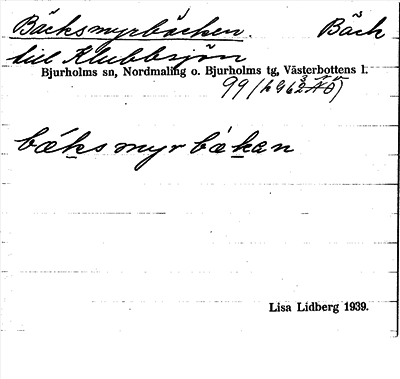 Bäcksmyrbäcken. Bäck
till Klubbsjön
Bjurholms sn, Nordmaling o. Bjurholms tg, Västerbottens l.
bæksmyrbækan
Lisa Lidberg 1939.